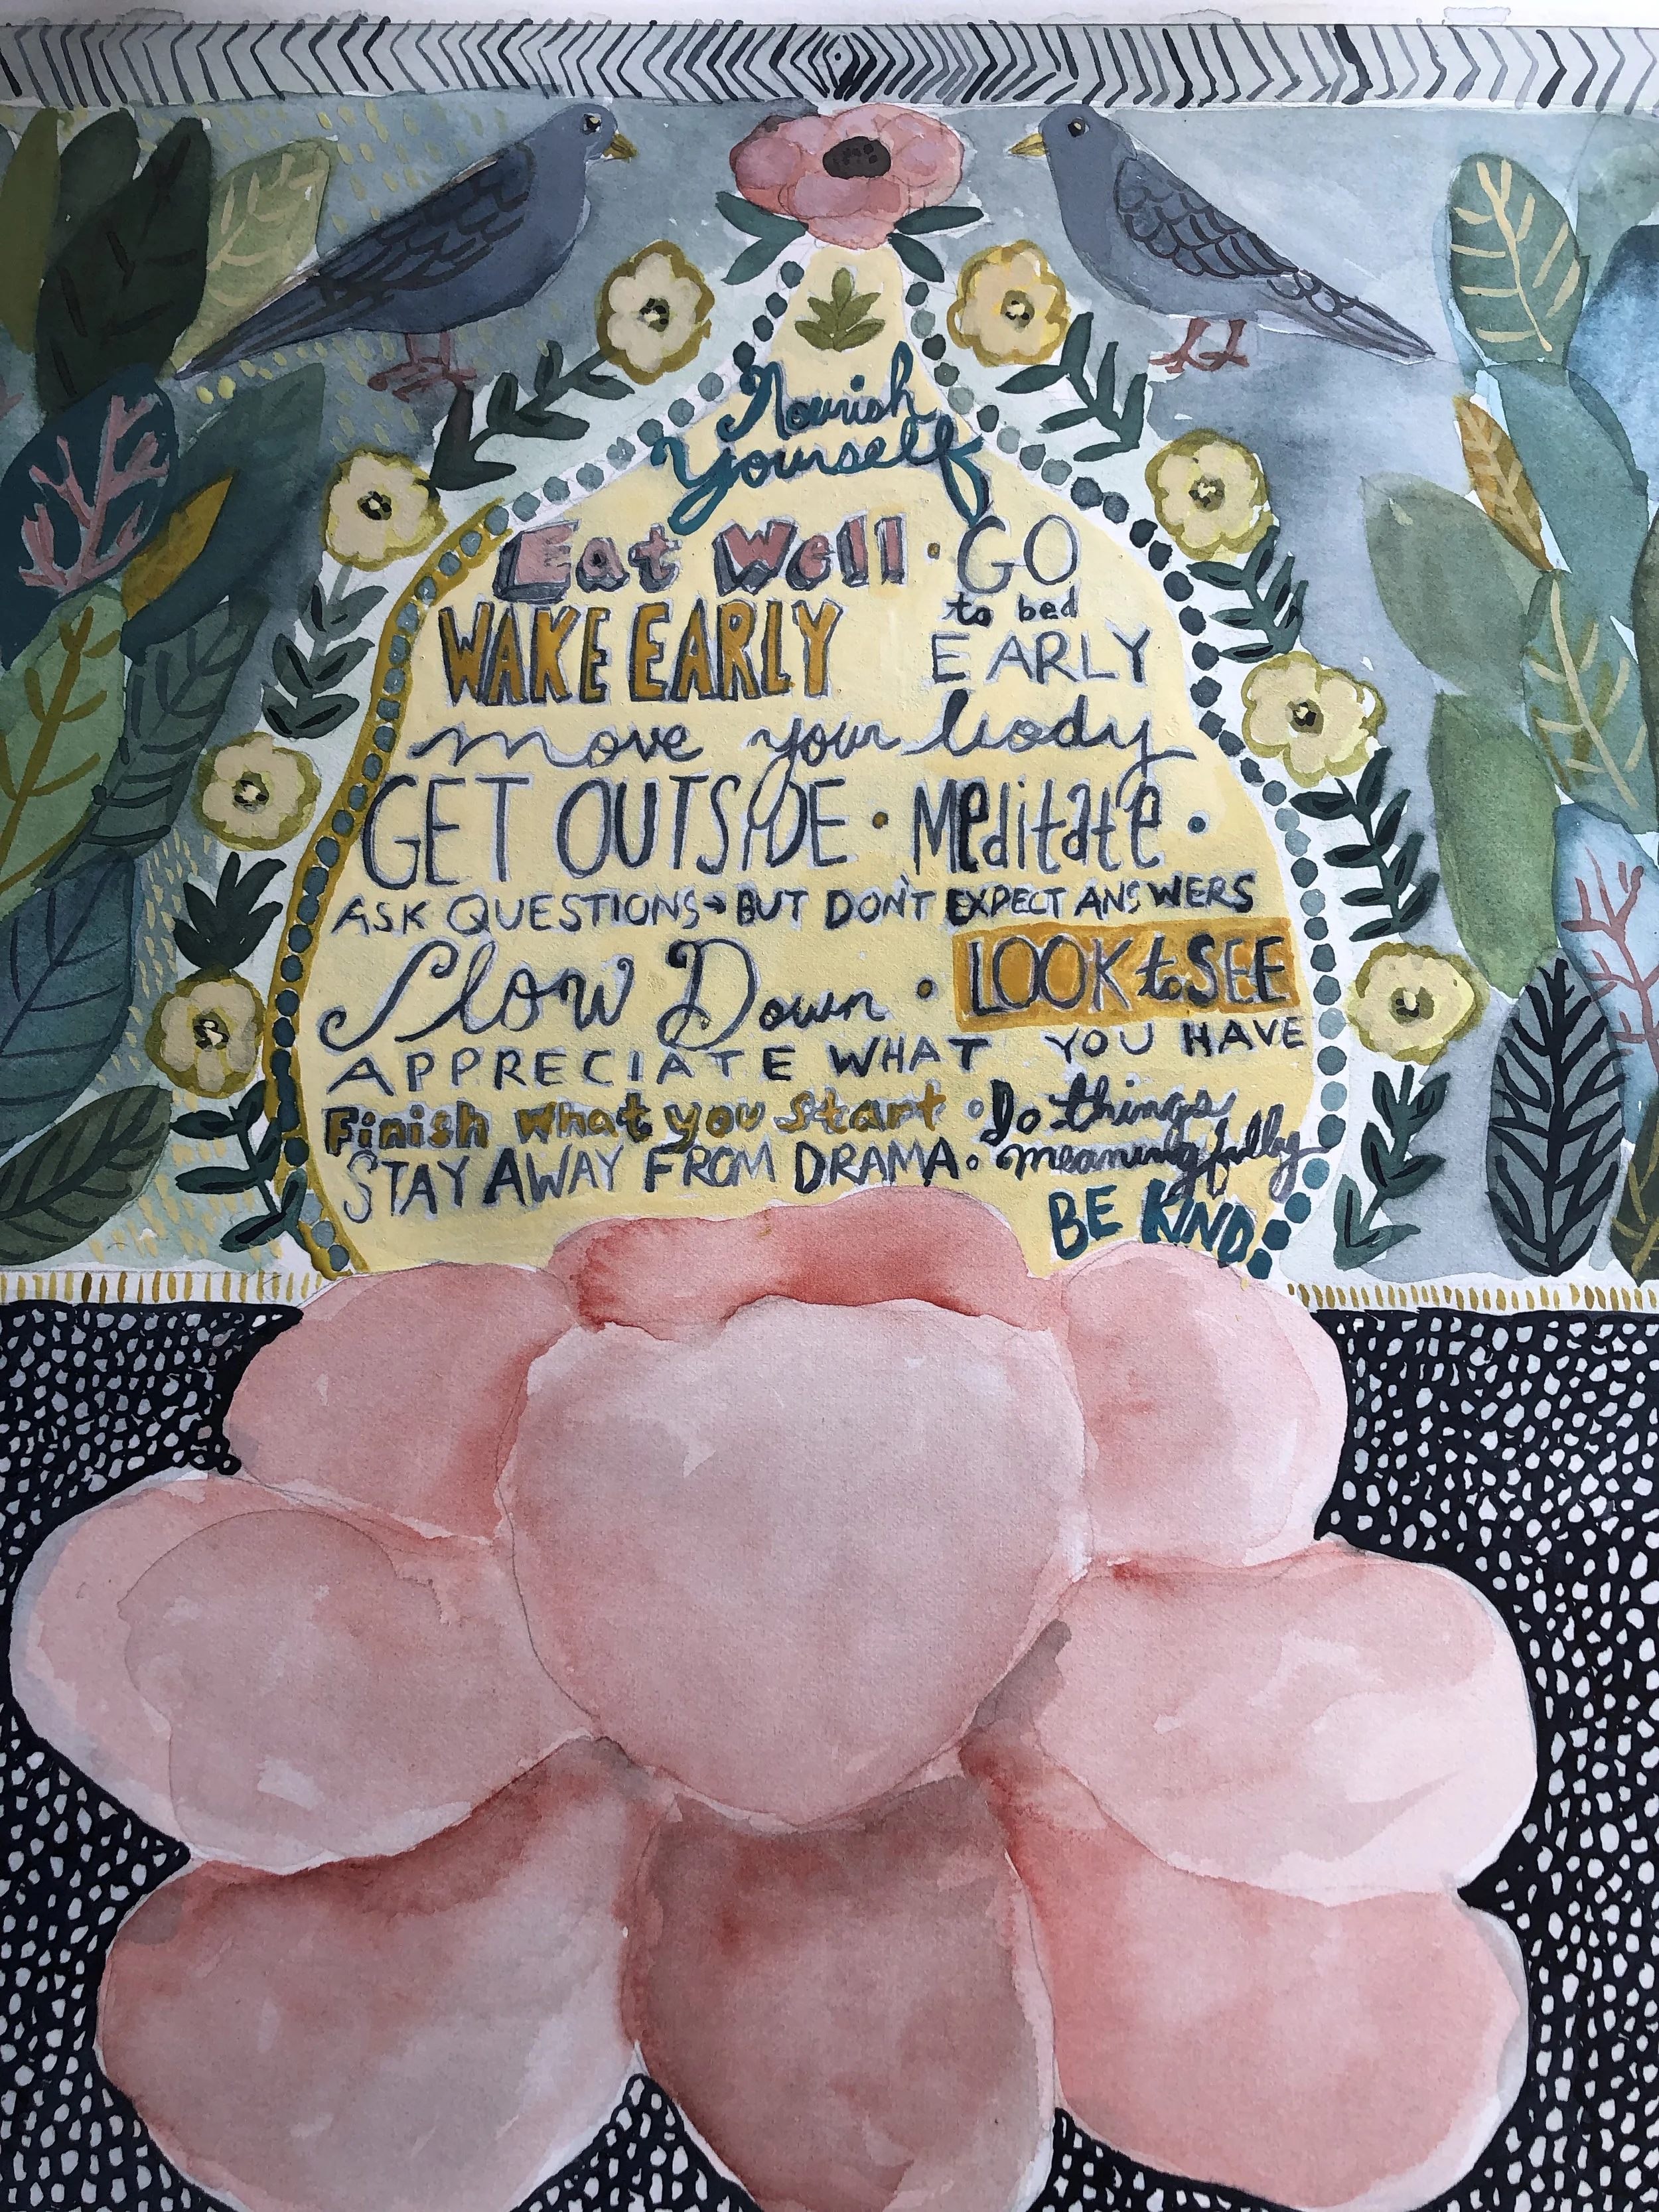 Nourish
Yourself
Eat Well • GO
to bed
WAKE EARLY EARLY
move your body
GET OUTSIDE • Meditate •
ASK QUESTIONS → BUT DON'T EXPECT ANSWERS
Slow Down • LOOK to SEE
APPRECIATE WHAT YOU HAVE
Finish what you start • Do things
STAY AWAY FROM DRAMA • meaningfully
BE KIND.